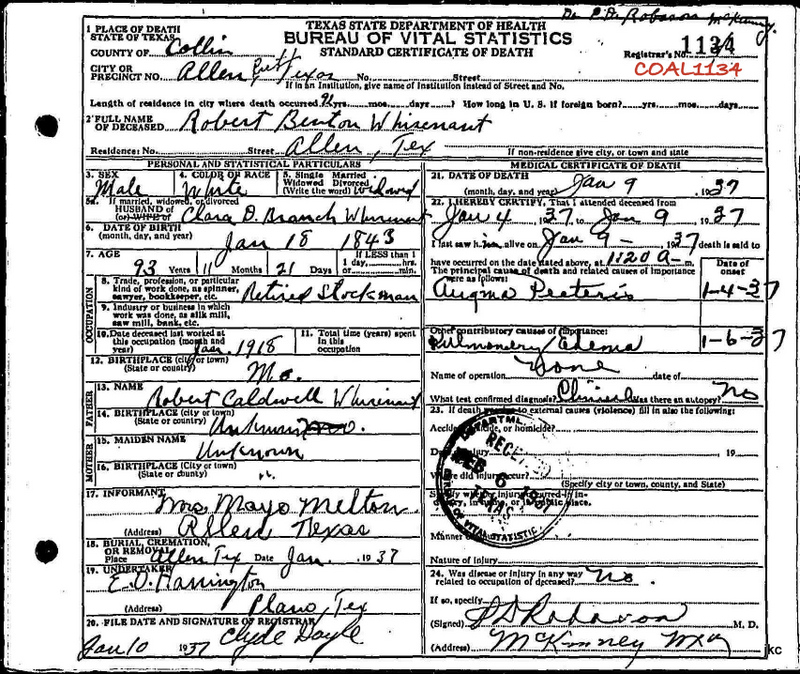 Dr. P. D. Robason McKinney.
TEXAS STATE DEPARTMENT OF HEALTH
BUREAU OF VITAL STATISTICS
STANDARD CERTIFICATE OF DEATH
1 PLACE OF DEATH
STATE OF TEXAS
COUNTY OF Collin
Registrar's No. 1134
COAL1134
CITY OR
PRECINCT NO. Allen Texas No. Street
If in an Institution, give name of Institution instead of Street and No.
Length of residence in city where death occurred 91 yrs. mos. days? How long in U. S. if foreign born? yrs. mos. days
2 FULL NAME
OF DECEASED Robert Benton Whisenant
Residence: No. Street Allen, Tex
If non-residence give city, or town and state
PERSONAL AND STATISTICAL PARTICULARS
3. SEX
Male
4. COLOR OR RACE
White
5. Single Married
Widowed Divorced
(Write the word) Widowed
5a. If married, widowed, or divorced
HUSBAND OF
(or) WIFE OF Clara D. Branch Whisenant
6. DATE OF BIRTH
(month, day, and year) Jan 18 1843
7. AGE
93 Years 11 Months 21 Days
If LESS than 1
1 day, hrs.
or min.
OCCUPATION
8. Trade, profession, or particular
kind of work done, as spinner,
sawyer, bookkeeper, etc. Retired Stockman
9. Industry or business in which
work was done, as silk mill,
saw mill, bank, etc.
10. Date deceased last worked at
this occupation (month and
year) Jan. 1918
11. Total time (years) spent
in this
occupation
12. BIRTHPLACE (city or town)
(State or country) Mo.
FATHER
13. NAME
Robert Caldwell Whisenant
14. BIRTHPLACE (city or town)
(State or country) Unknown
MOTHER
15. MAIDEN NAME
Unknown
16. BIRTHPLACE (City or town)
(State or county) "
17. INFORMANT Mrs Mayo Melton
(Address) Allen Texas
18. BURIAL, CREMATION,
OR REMOVAL
Place Allen Tex Date Jan. 1937
19. UNDERTAKER
E. O. Harrington
(Address) Plano, Tex
20. FILE DATE AND SIGNATURE OF REGISTRAR
Jan 10 1937 Clyde Dayle
MEDICAL CERTIFICATE OF DEATH
21. DATE OF DEATH
(month, day, and year) Jan 9 1937
22. I HEREBY CERTIFY, That I attended deceased from
Jan 4 1937 to Jan 9 1937
I last saw him alive on Jan 9 - 1937 death is said to
have occurred on the date stated above, at 1120 A- m.
The principal cause of death and related causes of importance
were as follows:
Date of
onset
Angma Pecteris 1-4-37
Other contributory causes of importance:
Pulmonery Edema 1-6-37
Name of operation None date of
What test confirmed diagnosis? Clinical Was there an autopsy? No
23. If death was due to external causes (violence) fill in also the following:
Accident, suicide, or homicide?
Date of injury 19
Where did injury occur?
(Specify city or town, county, and State)
Specify where injury occurred in in-
dustry, in home, or in public place.
Manner
Nature of injury
RECEIVED
FEB 6
TEXAS
OF VITAL STATISTIC
24. Was disease or injury in any way
related to occupation of deceased? No.
If so, specify
(Signed) P D Robason M. D.
(Address) McKinney
kc